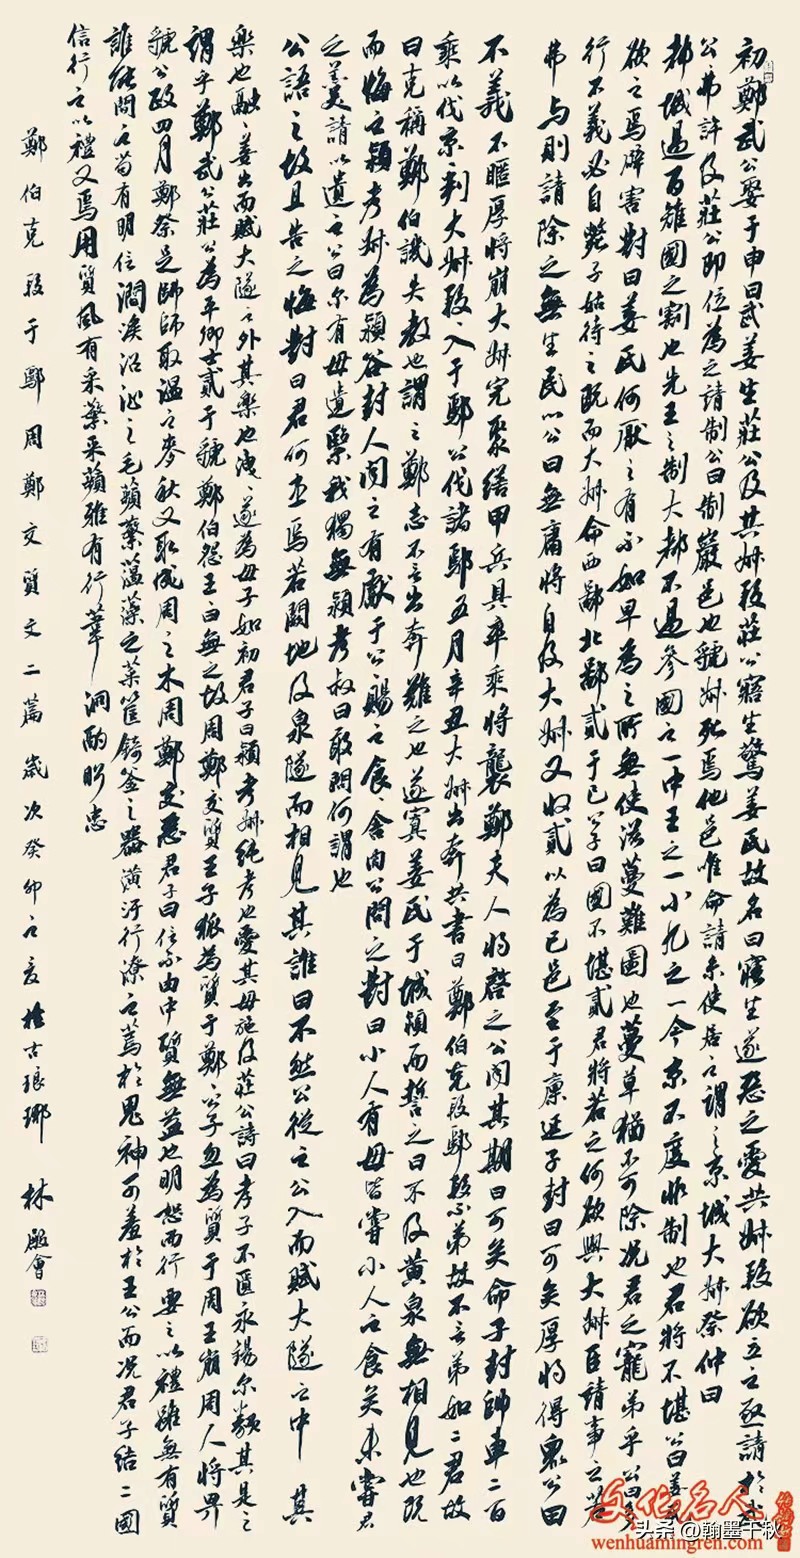 初鄭武公娶于申曰武姜生莊公及共叔段莊公寤生驚姜氏故名曰寤生遂惡之愛共叔段欲立之亟請於武
公弗許及莊公即位為之請制公曰制巖邑也虢叔死焉他邑唯命請京使居之謂之京城大叔祭仲曰
都城過百雉國之害也先王之制大都不過參國之一中五之一小九之一今京不度非制也君將不堪公曰姜氏
欲之焉辟害對曰姜氏何厭之有不如早為之所無使滋蔓蔓難圖也蔓草猶不可除况君之寵弟乎公曰多
行不義必自斃子姑待之既而大叔命西鄙北鄙貳于己公子呂曰國不堪貳君將若之何欲與大叔臣請事之若
弗与則請除之無生民心公曰無庸將自及大叔又收貳以為己邑至于廩延子封曰可矣厚將得衆公曰
不義不暱厚將崩大叔完聚繕甲兵具卒乘將襲鄭夫人將啓之公聞其期曰可矣命子封帥車二百
乘以伐京京叛大叔段段入于鄢公伐諸鄢五月辛丑大叔出奔共書曰鄭伯克段鄢段不弟故不言弟如二君故
曰克稱鄭伯譏失教也謂之鄭志不言出奔難之也遂寘姜氏于城潁而誓之曰不及黃泉無相見也既
而悔之潁考叔為潁谷封人聞之有獻于公公賜之食食舍肉公問之對曰小人有母皆嘗小人之食矣未嘗君
之羹請以遺之公曰尔有母遺繄我獨無潁考叔曰敢問何謂也
公語之故且告之悔對曰君何患焉若闕地及泉隧而相見其誰曰不然公從之公入而賦大隧之中其
樂也融融姜出而賦大隧之外其樂也洩洩遂為母子如初君子曰潁考叔純孝也愛其母施及莊公詩曰孝子不匱永錫尔類其是之
謂乎鄭武公莊公為平卿士貳于虢鄭伯怨王王曰無之故周鄭交質王子狐為質于鄭鄭公子忽為質于周王崩周人將畀
虢公政四月鄭祭足帥師取溫之麥秋又取成周之禾周鄭交惡君子曰信不由中質無益也明恕而行要之以禮雖無有質
誰能間之苟有明信澗溪沼沚之毛蘋蘩薀藻之菜筐錡釜之器潢汙行潦之薦於鬼神可羞於王公而况君子結二國
信行之以禮又焉用質風有采蘩采蘋雅有行葦泂酌昭忠
鄭伯克段于鄢周鄭交質文二篇歲次癸卯之夏於古琅琊林
會
文化名人
头条@翰墨千秋
wenhuamingren.com